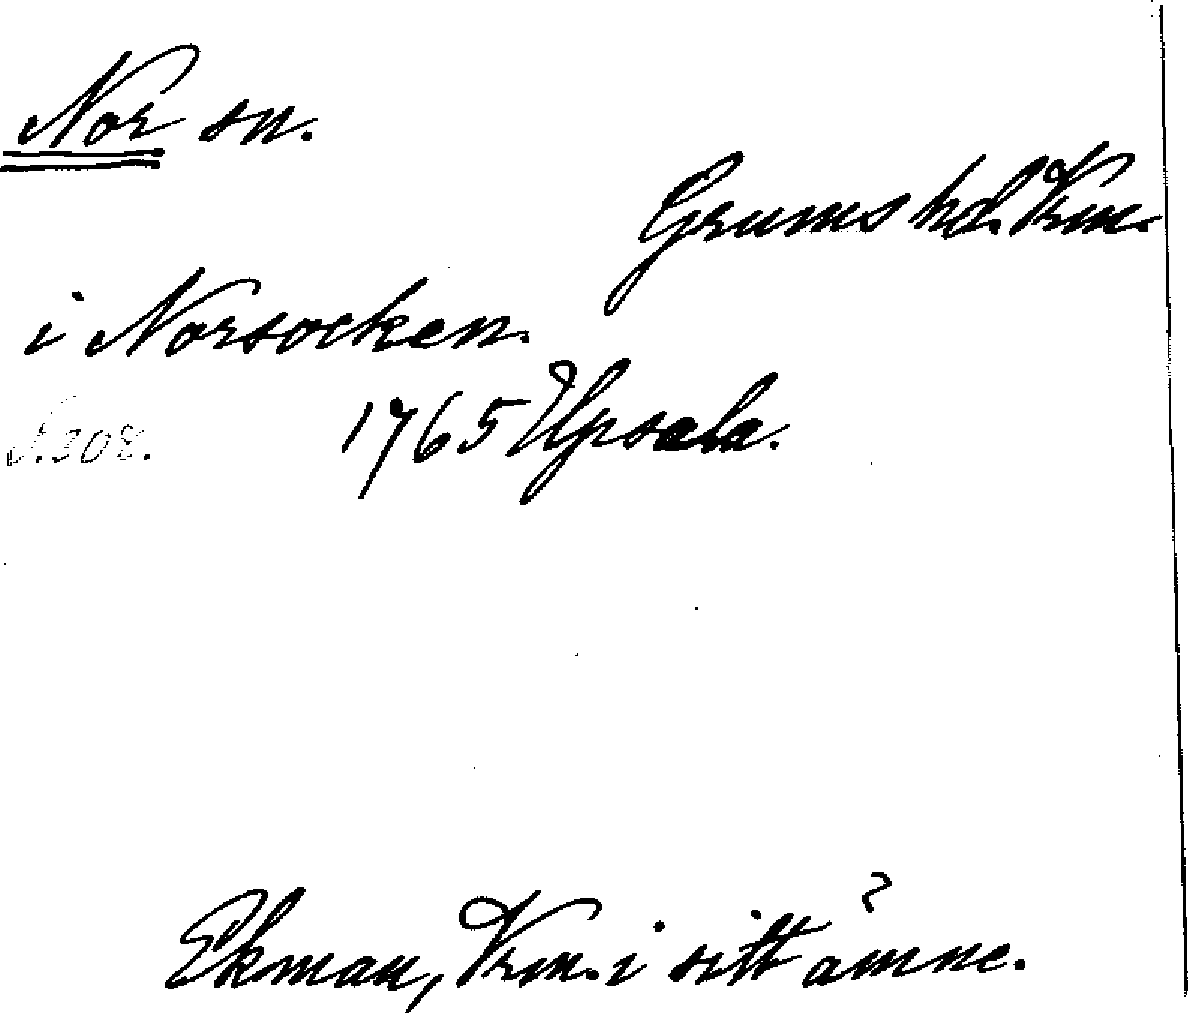 Nor sn.
Grums hd. Vrm.
i Norsocken.
S. 308. 1765 Upsala.
Ekman, Vrm. i sitt ämne.